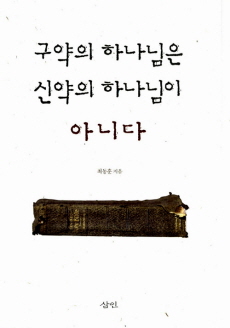 구약의 하나님은
신약의 하나님이
아니다
최동훈 지음
삼인